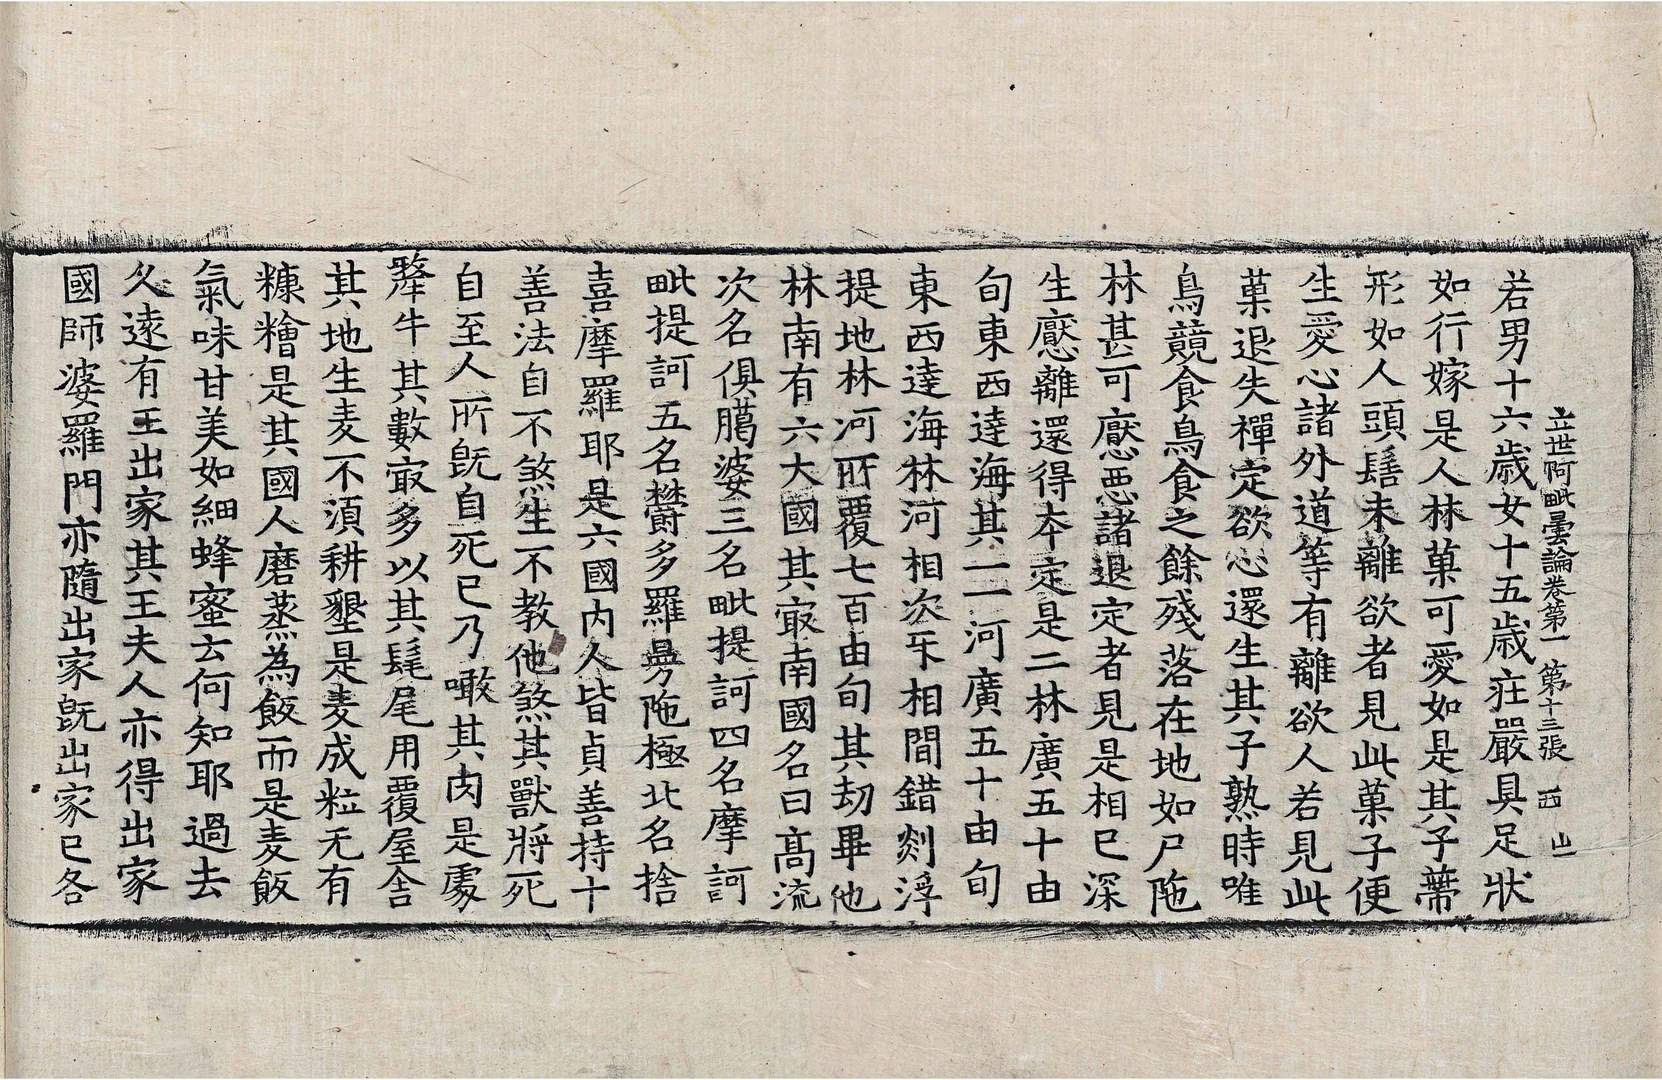 立世阿毗曇論卷第一　第十三張　西　山
若男十六歲女十五歲莊嚴具足狀
如行嫁是人林菓可愛如是其子蔕
形如人頭髻未離欲者見此菓子便
生愛心諸外道等有離欲人若見此
菓退失禪定欲心還生其子熟時唯
鳥競食鳥食之餘殘落在地如尸陁
林甚可懕惡諸退定者見是相已深
生懕離還得本定是二林廣五十由
旬東西達海其一一河廣五十由旬
東西達海林河相次牙相間錯剡浮
提地林河所覆七百由旬其刧畢他
林南有六大國其㝡南國名曰髙流
次名俱臈婆三名毗提訶四名摩訶
毗提訶五名欝多羅曼陁極北名捨
喜摩羅耶是六國内人皆貞善持十
善法自不煞生不教他煞其獸將死
自至人所旣自死已乃噉其肉是處
犛牛其數㝡多以其髦尾用覆屋舍
其地生麦不湏耕墾是麦成粒无有
糠糩是其國人磨蒸為飯而是麦飯
氣味甘美如細蜂蜜云何知耶過去
久遠有王出家其王夫人亦得出家
國師婆羅門亦隨出家旣出家已各